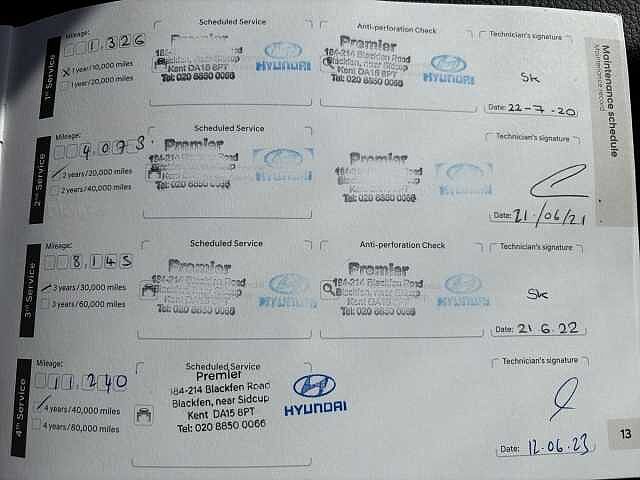 Maintenance schedule
Maintenance record
1st Service
Mileage:
1,326
1 year/10,000 miles
1 year/20,000 miles
Scheduled Service
Premier
184-214 Blackfen Road
Blackfen, near Sidcup
Kent DA15 8PT
Tel: 020 8850 0066
HYUNDAI
Anti-perforation Check
Premier
184-214 Blackfen Road
Blackfen, near Sidcup
Kent DA15 8PT
Tel: 020 8850 0066
HYUNDAI
Technician's signature
SK
Date: 22-7-20
2nd Service
Mileage:
4,073
2 years/20,000 miles
2 years/40,000 miles
Scheduled Service
Premier
184-214 Blackfen Road
Tel: 020 8850 0066
HYUNDAI
Premier
184-214 Blackfen Road
Tel: 020 8850 0066
HYUNDAI
Technician's signature
Date: 21/06/21
3rd Service
Mileage:
8,145
3 years/30,000 miles
3 years/60,000 miles
Scheduled Service
Premier
184-214 Blackfen Road
Blackfen, near Sidcup
Kent DA15 8PT
Tel: 020 8850 0066
HYUNDAI
Anti-perforation Check
Premier
184-214 Blackfen Road
Blackfen, near Sidcup
Kent DA15 8PT
Tel: 020 8850 0066
HYUNDAI
Technician's signature
SK
Date: 21 6.22
4th Service
Mileage:
11,240
4 years/40,000 miles
4 years/80,000 miles
Scheduled Service
Premier
184-214 Blackfen Road
Blackfen, near Sidcup
Kent DA15 8PT
Tel: 020 8850 0066
HYUNDAI
Technician's signature
Date: 12.06.23
13